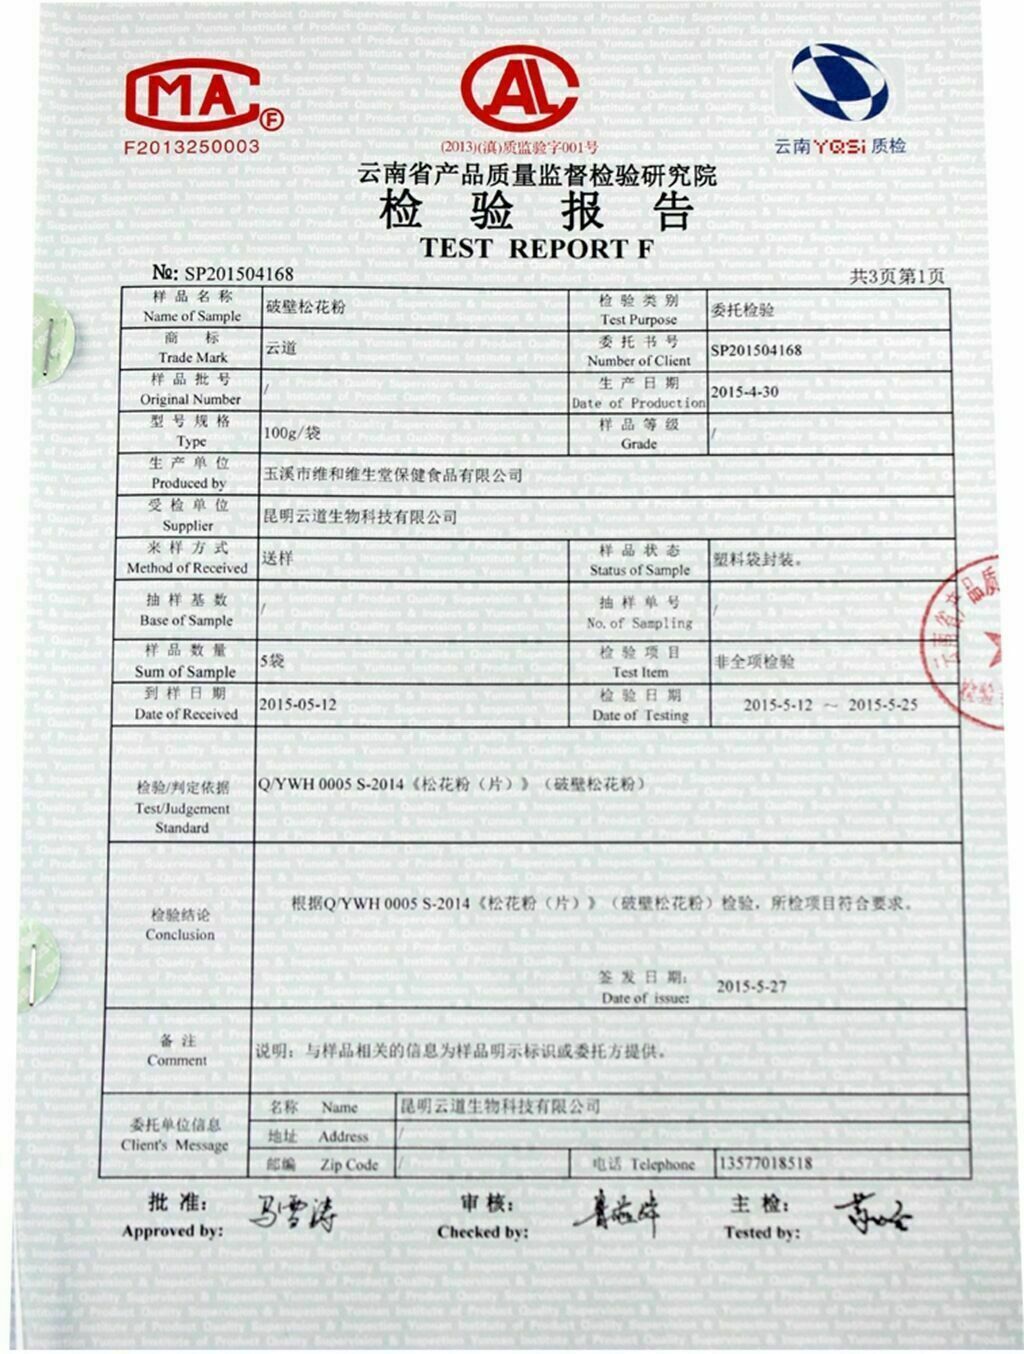 CMA F
F2013250003
CAL
(2013)(滇)质监验字001号
云南YQSi质检
云南省产品质量监督检验研究院
检 验 报 告
TEST REPORT F
№: SP201504168
共3页第1页
样品名称 Name of Sample 破壁松花粉 检验类别 Test Purpose 委托检验
商 标 Trade Mark 云道 委托书号 Number of Client SP201504168
样品批号 Original Number / 生产日期 Date of Production 2015-4-30
型号规格 Type 100g/袋 样品等级 Grade /
生产单位 Produced by 玉溪市维和维生堂保健食品有限公司
受检单位 Supplier 昆明云道生物科技有限公司
来样方式 Method of Received 送样 样品状态 Status of Sample 塑料袋封装。
抽样基数 Base of Sample / 抽样单号 No. of Sampling /
样品数量 Sum of Sample 5袋 检验项目 Test Item 非全项检验
到样日期 Date of Received 2015-05-12 检验日期 Date of Testing 2015-5-12 ～ 2015-5-25
检验/判定依据 Test/Judgement Standard Q/YWH 0005 S-2014《松花粉（片）》（破壁松花粉）
检验结论 Conclusion 根据Q/YWH 0005 S-2014《松花粉（片）》（破壁松花粉）检验，所检项目符合要求。
签发日期: Date of issue: 2015-5-27
备注 Comment 说明：与样品相关的信息为样品明示标识或委托方提供。
委托单位信息 Client's Message
名称 Name 昆明云道生物科技有限公司
地址 Address /
邮编 Zip Code / 电话 Telephone 13577018518
批准: Approved by: 马雪涛 审核: Checked by: 主检: Tested by: